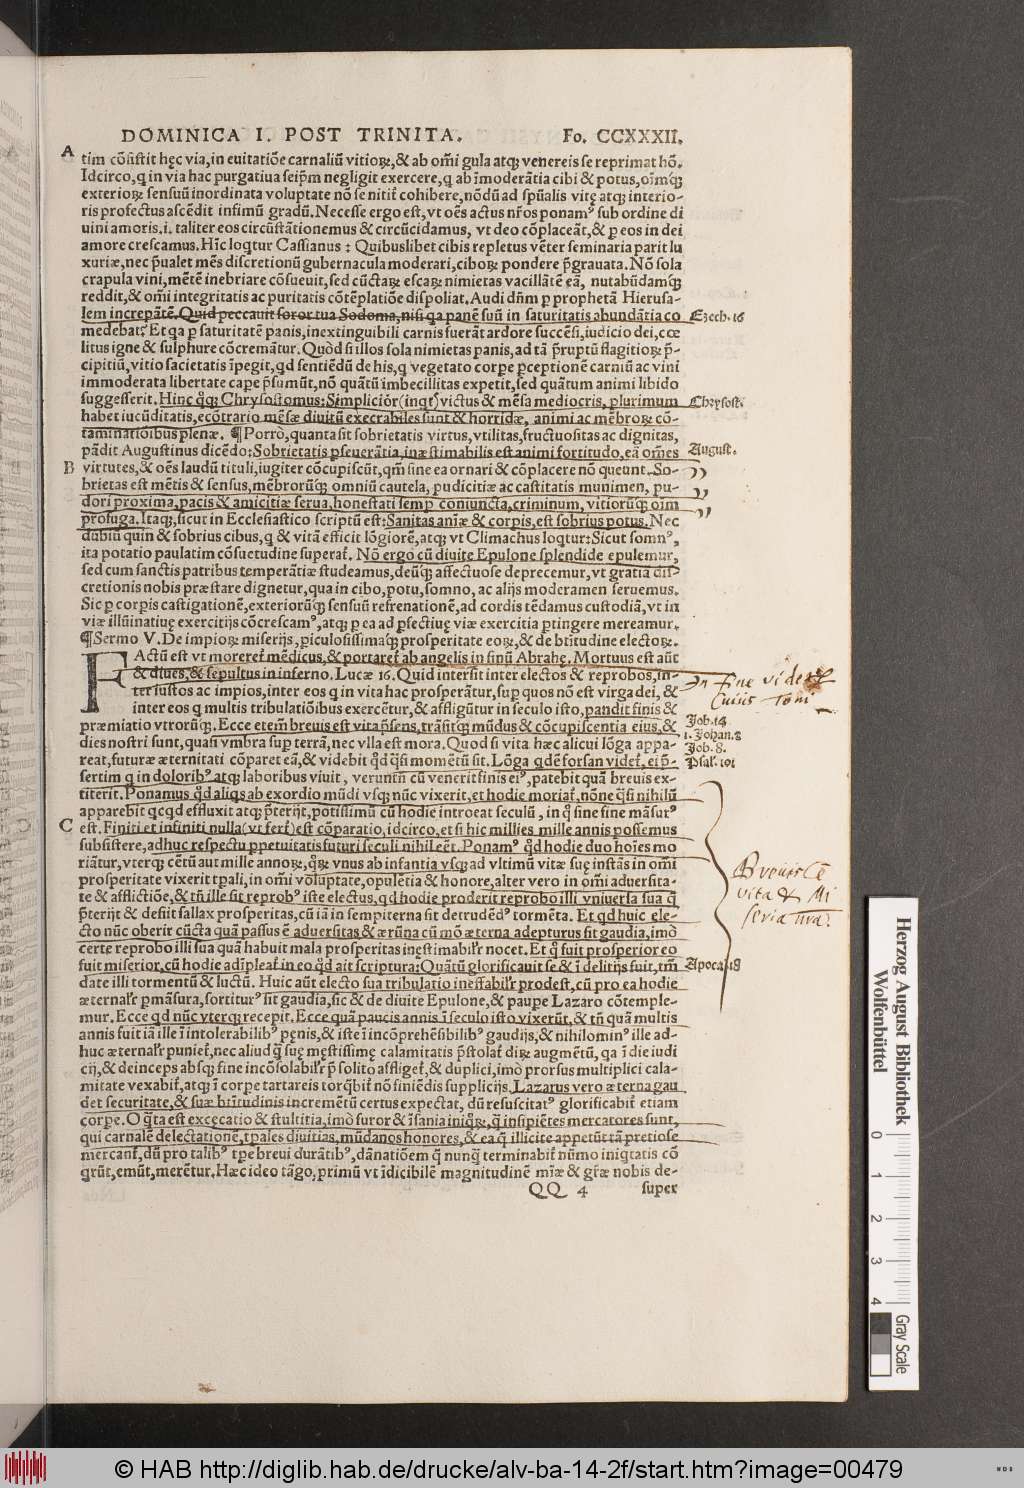 DOMINICA I. POST TRINITA. Fo. CCXXXII.
A
tim cõsistit hęc via, in euitatiõe carnaliũ vitioꝝ, & ab om̃i gula atq; venereis se reprimat hõ.
Idcirco, q in via hac purgatiua seip̃m negligit exercere, q ab ĩmoderãtia cibi & potus, oĩmq;
exterioꝝ sensuũ inordinata voluptate nõ se nitit̃ cohibere, nõdũ ad sp̃ualis vitę atq; interio-
ris profectus ascẽdit infimũ gradũ. Necesse ergo est, vt oẽs actus nr̃os ponamꝰ sub ordine di
uini amoris .i. taliter eos circũstãtionemus & circũcidamus, vt deo cõplaceãt, & ꝑ eos in dei
amore crescamus. Hĩc loqtur Cassianus : Quibuslibet cibis repletus vẽter seminaria parit lu
xuriæ, nec p̃ualet mẽs discretionũ gubernacula moderari, ciboꝝ pondere p̃grauata. Nõ sola
crapula vini, mẽtẽ inebriare cõsueuit, sed cũctaꝝ escaꝝ nimietas vacillãtẽ eã, nutabũdamq;
reddit, & om̃i integritatis ac puritatis cõtẽplatiõe dispoliat. Audi dñm ꝑ prophetã Hierusa-
lem increpãtẽ. Quid peccauit soror tua Sodoma, nisi qa panẽ suũ in saturitatis abundãtia co
medebat? Et qa ꝑ saturitatẽ panis, inextinguibili carnis fuerãt ardore succẽsi, iudicio dei, cœ
litus igne & sulphure cõcremãtur. Quòd si illos sola nimietas panis, ad tã p̃ruptũ flagitioꝝ p̃-
cipitiũ, vitio sacietatis ĩpegit, qd sentiẽdũ de his, q vegetato corpe ꝑceptionẽ carniũ ac vini
immoderata libertate cape p̃sumũt, nõ quãtũ imbecillitas expetit, sed quãtum animi libido
suggesserit. Hinc q̃q; Chrysostomus: Simplicior (inqt) victus & mẽsa mediocris, plurimum
habet iucũditatis, ecõtrario mẽsæ diuitũ execrabiles sunt & horridæ, animi ac mẽbroꝝ cõ-
taminatiõibus plenæ. ¶ Porrò, quanta sit sobrietatis virtus, vtilitas, fructuositas ac dignitas,
pãdit Augustinus dicẽdo: Sobrietatis ꝑseuerãtia, inæstimabilis est animi fortitudo, eã om̃es
B
virtutes, & oẽs laudũ tituli, iugiter cõcupiscũt, qm̃ sine ea ornari & cõplacere nõ queunt. So-
brietas est mẽtis & sensus, mẽbrorũq; omniũ cautela, pudicitiæ ac castitatis munimen, pu-
dori proxima, pacis & amicitiæ serua, honestati semꝑ coniuncta, criminum, vitiorũq; oĩm
profuga. Itaq;, sicut in Ecclesiastico scriptũ est: Sanitas anĩæ & corpis, est sobrius potus. Nec
dubiũ quin & sobrius cibus, q & vitã efficit lõgiorẽ, atq; vt Climachus loqtur: Sicut somnꝰ,
ita potatio paulatim cõsuetudine superat̃. Nõ ergo cũ diuite Epulone splendide epulemur,
sed cum sanctis patribus temperãtiæ studeamus, deũq; affectuose deprecemur, vt gratiã dis-
cretionis nobis præstare dignetur, qua in cibo, potu, somno, ac alijs moderamen seruemus.
Sic ꝑ corpis castigationẽ, exteriorũq; sensuũ refrenationẽ, ad cordis tẽdamus custodiã, vt in
viæ illũinatiuę exercitijs cõcrescamꝰ, atq; ꝑ ea ad ꝑfectiuę viæ exercitia ꝑtingere mereamur.
¶ Sermo V. De impioꝝ miserijs, ꝑiculosissimaq; prosperitate eoꝝ, & de btĩtudine electoꝝ.
FActũ est vt moreret̃ mẽdicus, & portaret̃ ab angelis in sinũ Abrahę. Mortuus est aũt
& diues, & sepultus in inferno. Lucæ 16. Quid intersit inter electos & reprobos, in-
ter iustos ac impios, inter eos q in vita hac prosperãtur, suꝑ quos nõ est virga dei, &
inter eos q multis tribulatiõibus exercẽtur, & affligũtur in seculo isto, pandit finis &
præmiatio vtrorũq;. Ecce etem̃ breuis est vita p̃sens, trãsitq; mũdus & cõcupiscentia eius, &
dies nostri sunt, quasi vmbra suꝑ terrã, nec vlla est mora. Quod si vita hæc alicui lõga appa-
reat, futuræ æternitati cõparet eã, & videbit q̃d q̃si momẽtũ sit. Lõga qdẽ forsan videt̃, ei p̃-
sertim q in doloribꝰ atq; laboribus viuit, verunt̃n cũ venerit finis eiꝰ, patebit quã breuis ex-
titerit. Ponamus q̃d aliqs ab exordio mũdi vsq; nũc vixerit, et hodie moriat̃, nõne q̃si nihilũ
apparebit qcqd effluxit atq; p̃terijt, potissimũ cũ hodie introeat seculũ, in q̃ sine fine mãsurꝰ
C
est. Finiti et infiniti nulla (vt fert̃) est cõparatio, idcirco, et si hic millies mille annis possemus
subsistere, adhuc respectu ꝑpetuitatis futuri seculi nihil eẽt. Ponamꝰ q̃d hodie duo hoĩes mo
riãtur, vterq; cẽtũ aut mille annoꝝ, q̃ꝝ vnus ab infantia vsq; ad vltimũ vitæ suę instãs in om̃i
prosperitate vixerit tꝑali, in om̃i voluptate, opulẽtia & honore, alter vero in om̃i aduersita-
te & afflictiõe, & tñ ille sit reprobꝰ iste electus, qd hodie proderit reprobo illi vniuersa sua q̃
p̃terijt & desijt fallax prosperitas, cũ iã in sempiterna sit detrudẽdꝰ tormẽta. Et qd huic ele-
cto nũc oberit cũcta quã passus ẽ aduersitas & ærũna cũ mõ æterna adepturus sit gaudia, imò
certe reprobo illi sua quã habuit mala prosperitas inęstimabilr̃ nocet. Et q̃ fuit prosperior eo
fuit miserior, cũ hodie adĩpleat̃ in eo q̃d ait scriptura: Quãtũ glorificauit se & ĩ delitijs fuit, tm̃
date illi tormentũ & luctũ. Huic aũt electo sua tribulatio ineffabilr̃ prodest, cũ pro ea hodie
æternalr̃ ꝑmãsura, sortiturꝰ sit gaudia, sic & de diuite Epulone, & paupe Lazaro cõtemple-
mur. Ecce qd nũc vterq; recepit. Ecce quã paucis annis ĩ seculo isto vixerũt, & tñ quã multis
annis fuit iã ille ĩ intolerabilibꝰ pęnis, & iste ĩ incõprehẽsibilibꝰ gaudijs, & nihilominꝰ ille ad-
huc æternalr̃ puniet̃, nec aliud q̃ suę męstissimę calamitatis p̃stolat̃ diꝝ augmẽtũ, qa ĩ die iudi
cij, & deinceps absq; fine incõsolabilr̃ p̃ solito affliget̃, & duplici, imò prorsus multiplici cala-
mitate vexabit̃, atq; ĩ corpe tartareis torq̃bit̃ nõ finiẽdis supplicijs. Lazarus vero æterna gau
det securitate, & suæ btĩtudinis incremẽtũ certus expectat, dũ resuscitatꝰ glorificabit̃ etiam
corpe. O q̃ta est excęcatio & stultitia, imò furor & ĩsania iniq̃ꝝ, q̃ insipiẽtes mercatores sunt,
qui carnalẽ delectationẽ, tꝑales diuitias, mũdanos honores, & ea q̃ illicite appetũt tã pretiose
mercant̃, dũ pro talibꝰ tꝑe breui durãtibꝰ, dãnatiõem q̃ nunq̃ terminabit̃ nũmo iniqtatis cõ
qrũt, emũt, merẽtur. Hæc ideo tãgo, primũ vt ĩdicibilẽ magnitudinẽ mĩæ & gr̃æ nobis de-
QQ 4 super
Ezech. 16
Chrysost.
August.
In fine vide
Cuius Tomi
Job. 14
1. Johan. 2
Job. 8.
Psal. 101
Breuis ẽ
vita & Mi
seria nr̃a.
Apoca. 18
Herzog August Bibliothek
Wolfenbüttel
0 1 2 3 4
Gray Scale
© HAB http://diglib.hab.de/drucke/alv-ba-14-2f/start.htm?image=00479